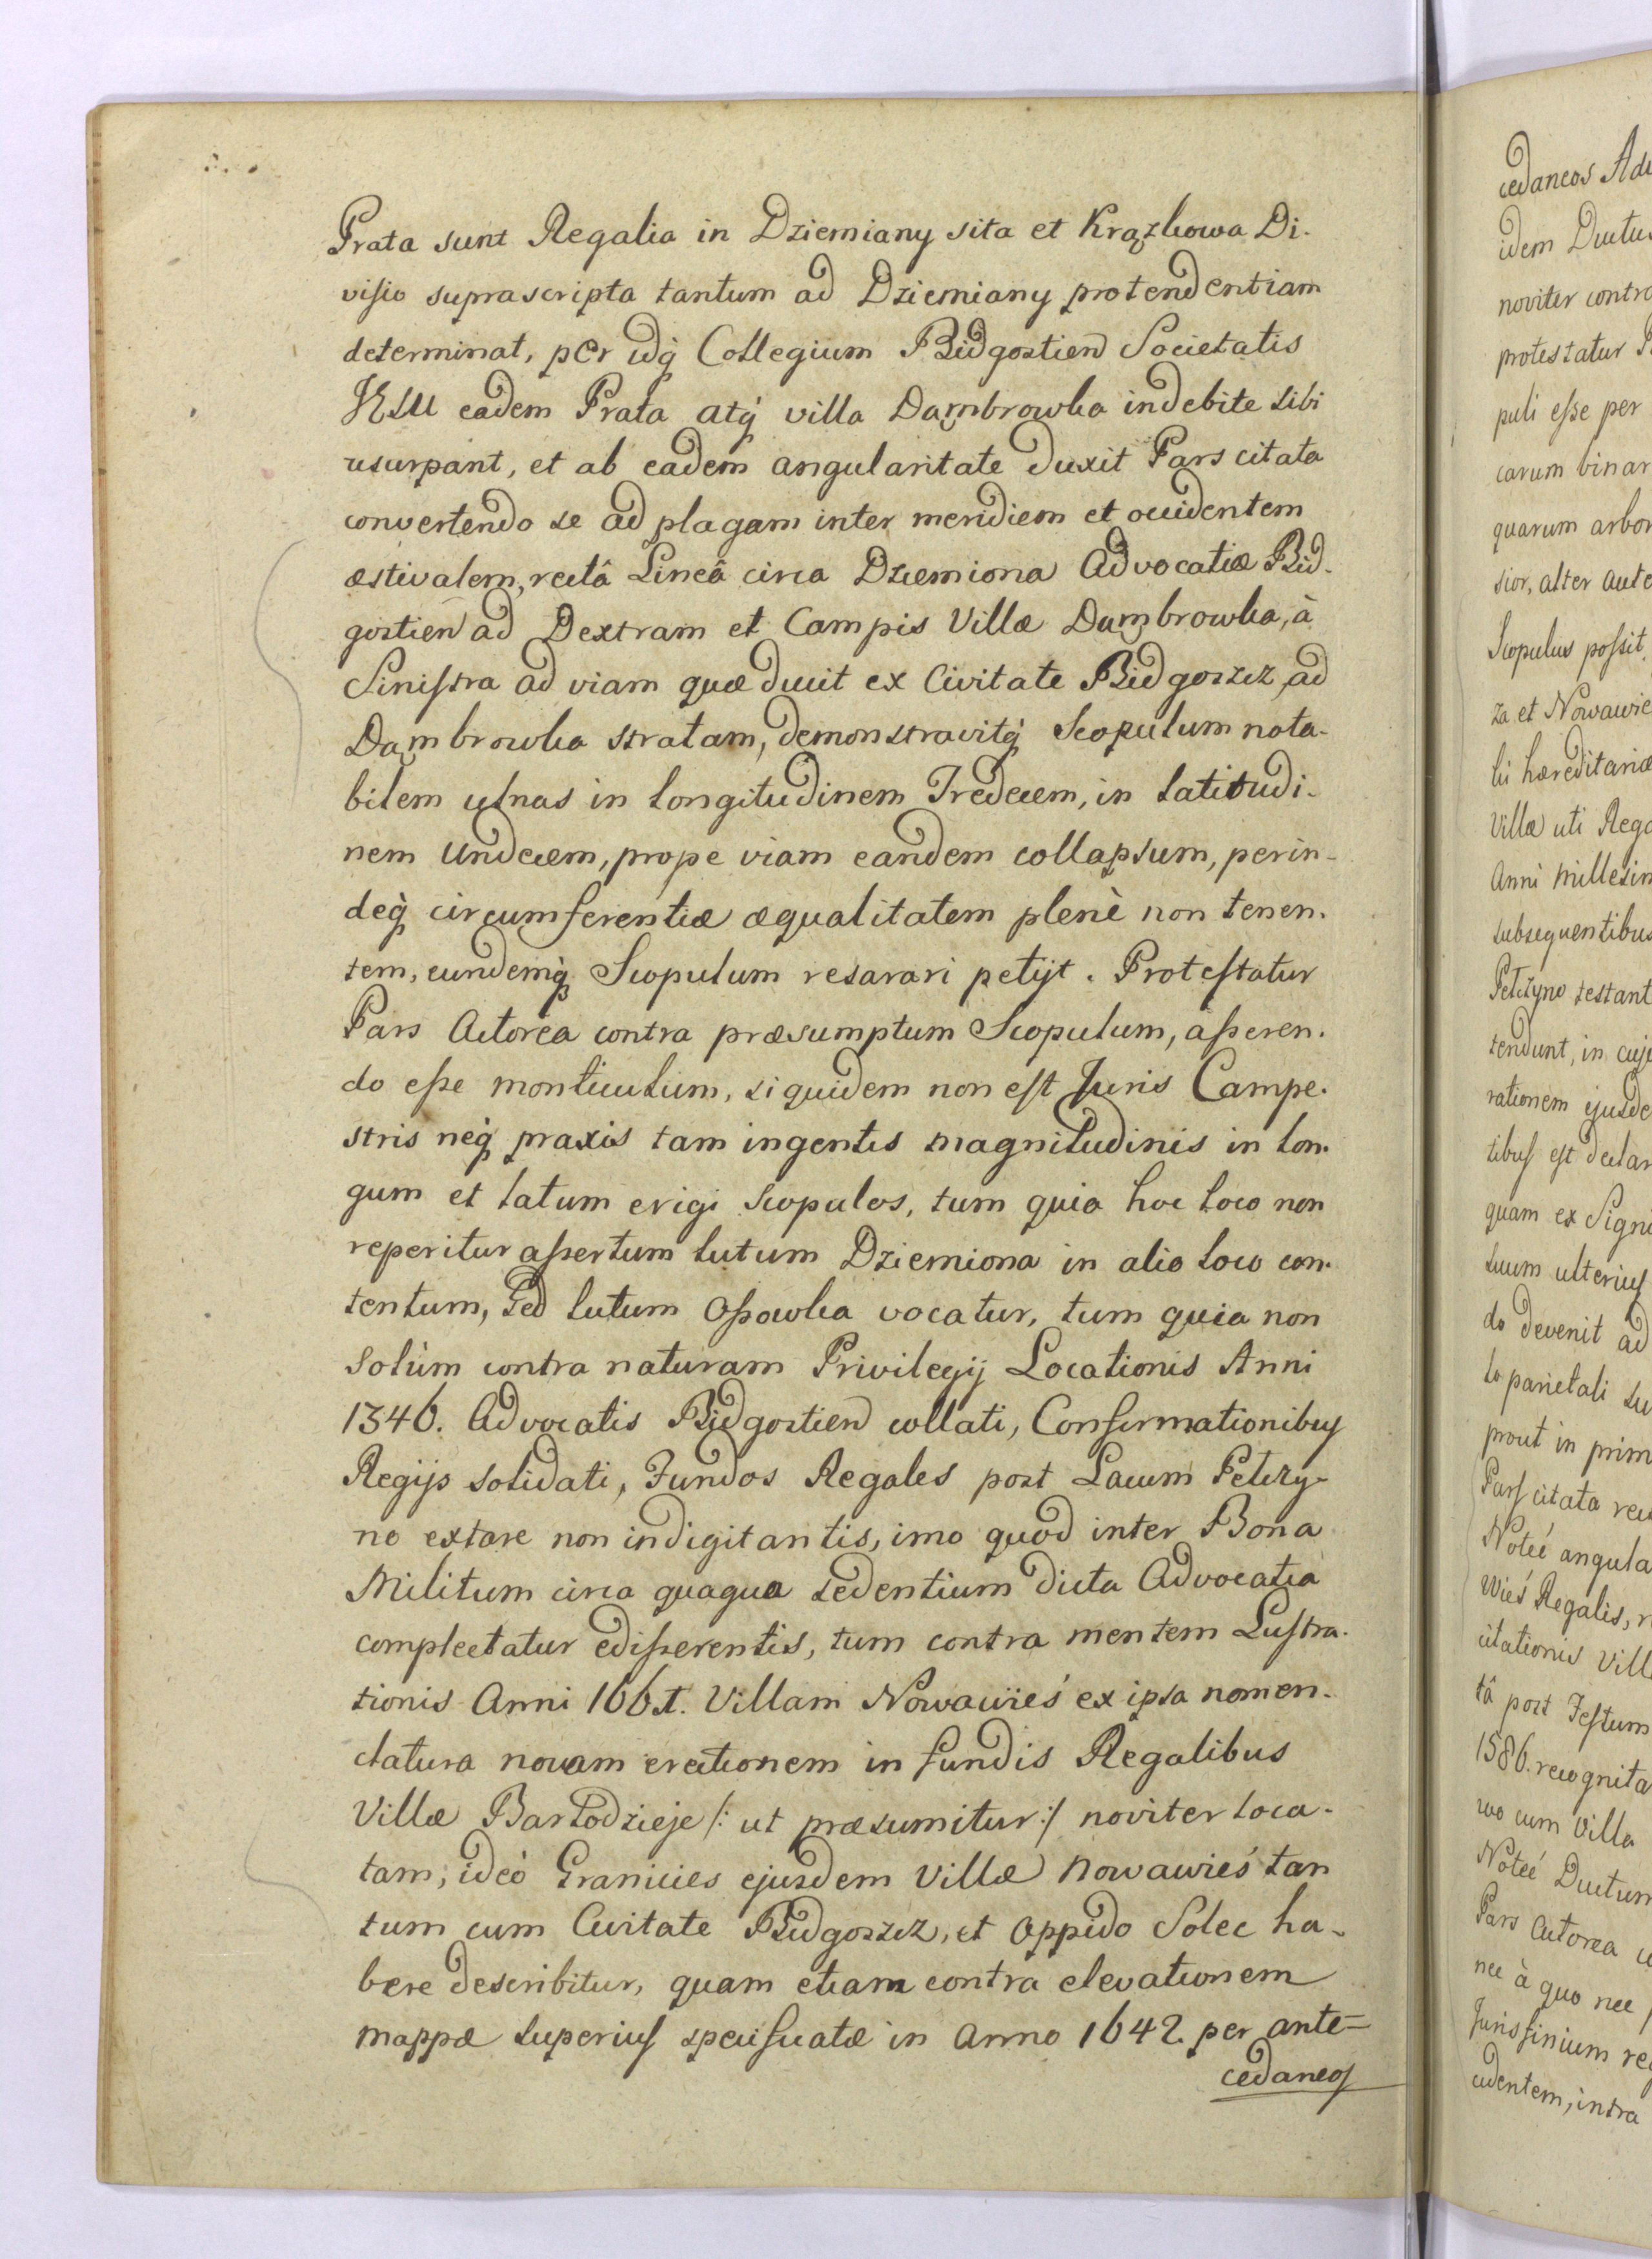 Prata sunt Regalia in Dziemiany sita et Krązkowa Di-
visio suprascripta tantum ad Dziemiany protendentiam
determinat, per idq́ Collegium Bidgostien Societatis
JESU eadem Prata atq́ villa Dambrowka indebite sibi
usurpant, et ab eadem angularitate duxit Pars citata
convertendo se ad plagam inter meridiem et occidentem
æstivalem, rectâ Lineâ circa Dziemiona Advocatiæ Bid-
gostien ad Dextram et Campis Villæ Dambrowka, à
Sinistra ad viam quæ ducit ex Civitate Bidgoszcz ad
Dambrowka stratam, demonstravitq́ Scopulum nota-
bilem ulnas in longitudinem Tredecem, in latitudi-
nem Undecem, prope viam eandem collapsum, perin-
deq́ circumferentiæ æqualitatem plenè non tenen-
tem, eundemq́ Scopulum resarari petijt. Protestatur
Pars Actorea contra præsumptum Scopulum, asseren-
do esse monticulum, siquidem non est Juris Campe-
stris neq́ praxis tam ingentis magnitudinis in lon-
gum et latum erigi scopulos, tum quia hoc loco non
reperitur assertum lutum Dziemiona in alio loco con-
tentum, sed lutum Ossowka vocatur, tum quia non
solùm contra naturam Privilegij Locationis Anni
1346. Advocatis Bidgostien collati, Confirmationibus
Regijs solidati, Fundos Regales post Lacum Petczy-
no extare non indigitantis, imo quod inter Bona
Militum circa quaqua sedentium dicta Advocatia
complectatur edisserentis, tum contra mentem Lustra-
tionis Anni 1661. Villam Nowawieś ex ipsa nomen-
clatura novam erectionem in fundis Regalibus
Villæ Bartodzieje /: ut præsumitur :/ noviter loca-
tam, ideò Granicies ejusdem Villæ Nowawieś tan
tum cum Civitate Bidgoszcz, et Oppido Solec ha-
bere describitur, quam etiam contra elevationem
mappæ superius specificatæ in Anno 1642. per ante=
cedaneos
cedaneos
idem Ductus
noviter
protestatur
puli esse per
carum
quarum
sior, alter
Scopulus possit
za et
hæreditariæ
Villæ uti
Anni
subsequentibus
tendunt, in
rationem
est
quam ex
suum ulterius
do devenit ad
lo parietali
prout in
Pars citata
Noteć
Wieś Regalis,
citationis
tâ post Festum
1586. recognita
cum Villa
Noteć Ductum
Pars Actorea
nec à quo nec
Juris finium
cidentem, intra